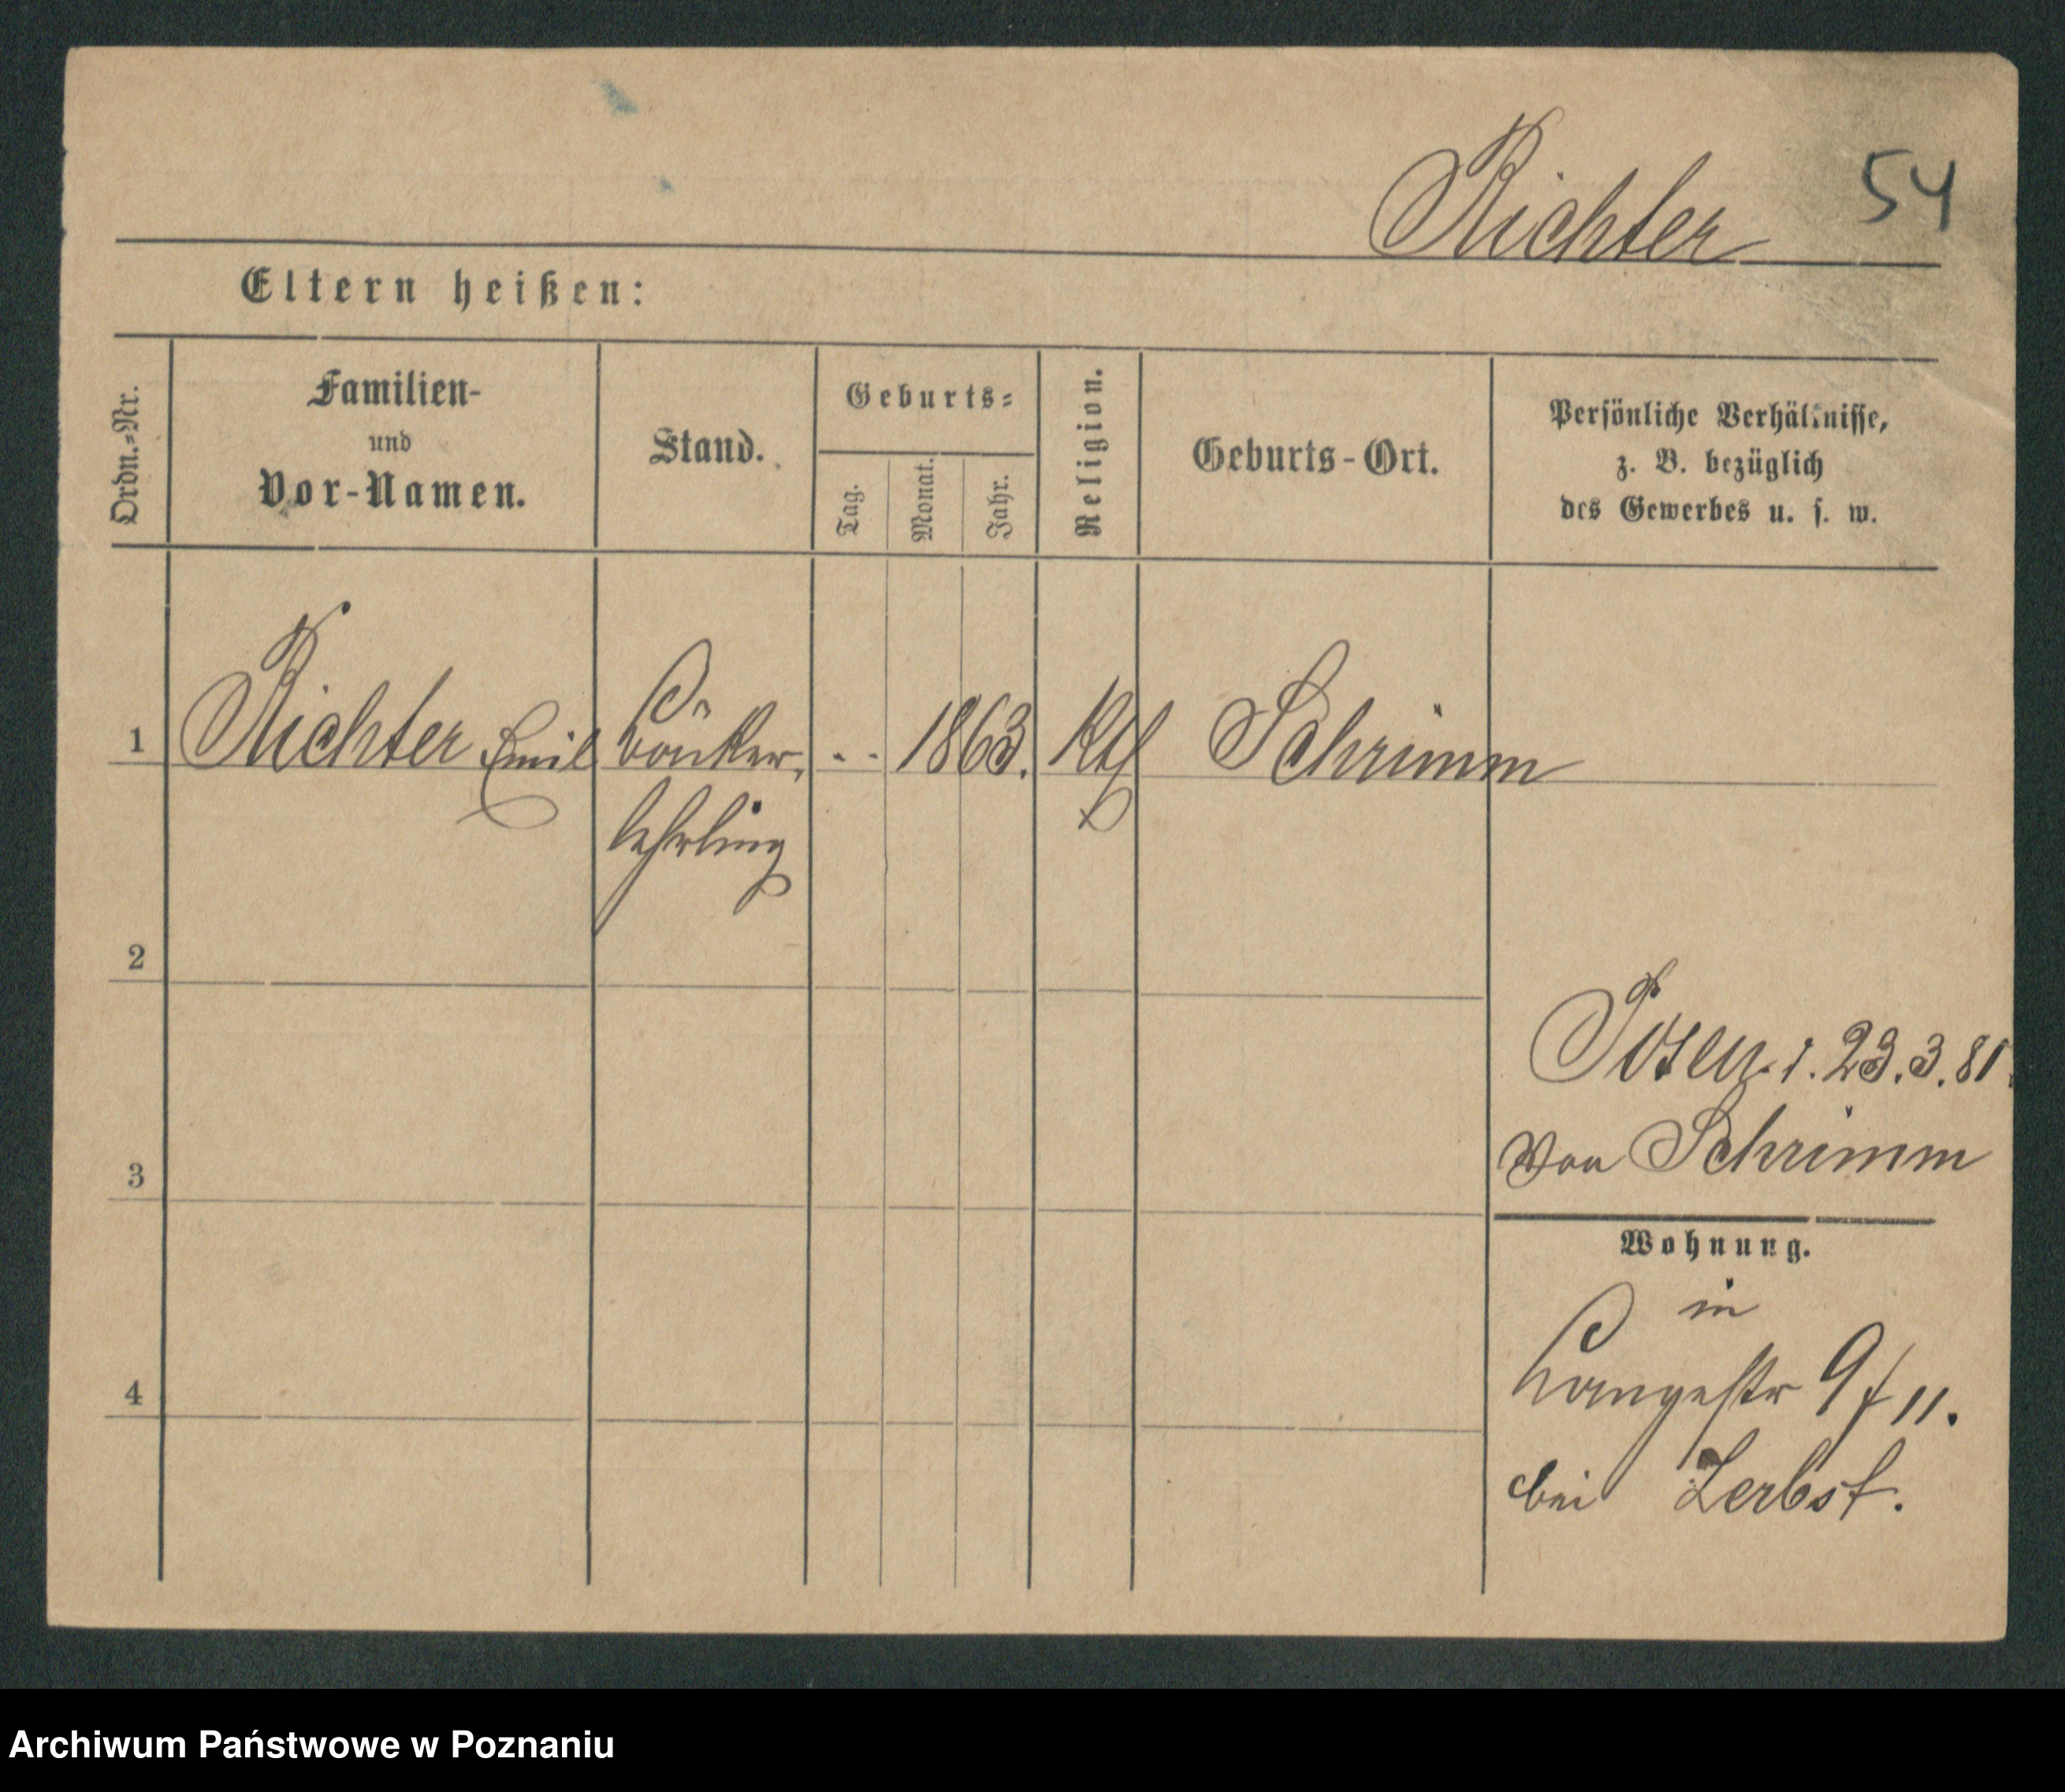 Richter 54
Eltern heißen:
Ordn.-Nr.
Familien-
und
Vor-Namen.
Stand.
Geburts-
Tag.
Monat.
Jahr.
Religion.
Geburts-Ort.
Persönliche Verhältnisse,
z. B. bezüglich
des Gewerbes u. s. w.
1 Richter Emil Bäcker, - - 1863. Kth Schrimm
lehrling
2
Posen 23.3.81.
Von Schrimm
3
Wohnung.
in
Langestr 9/11.
4
bei Zerbst.
Archiwum Państwowe w Poznaniu